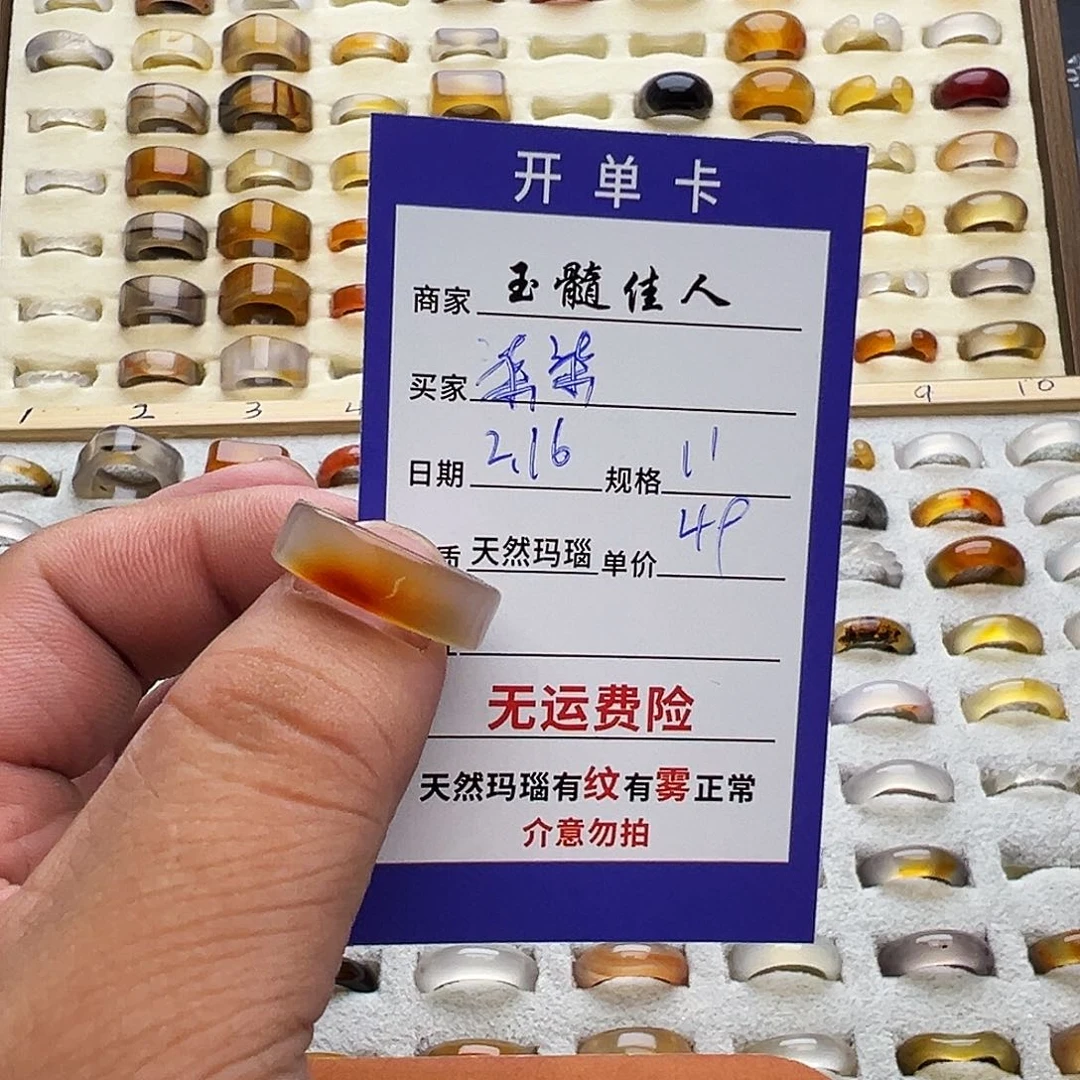 开单卡
商家 玉髓佳人
买家
日期 2.16 规格 11
质 天然玛瑙 单价 49
无运费险
天然玛瑙有纹有雾正常
介意勿拍
1 2 3 4 9 10